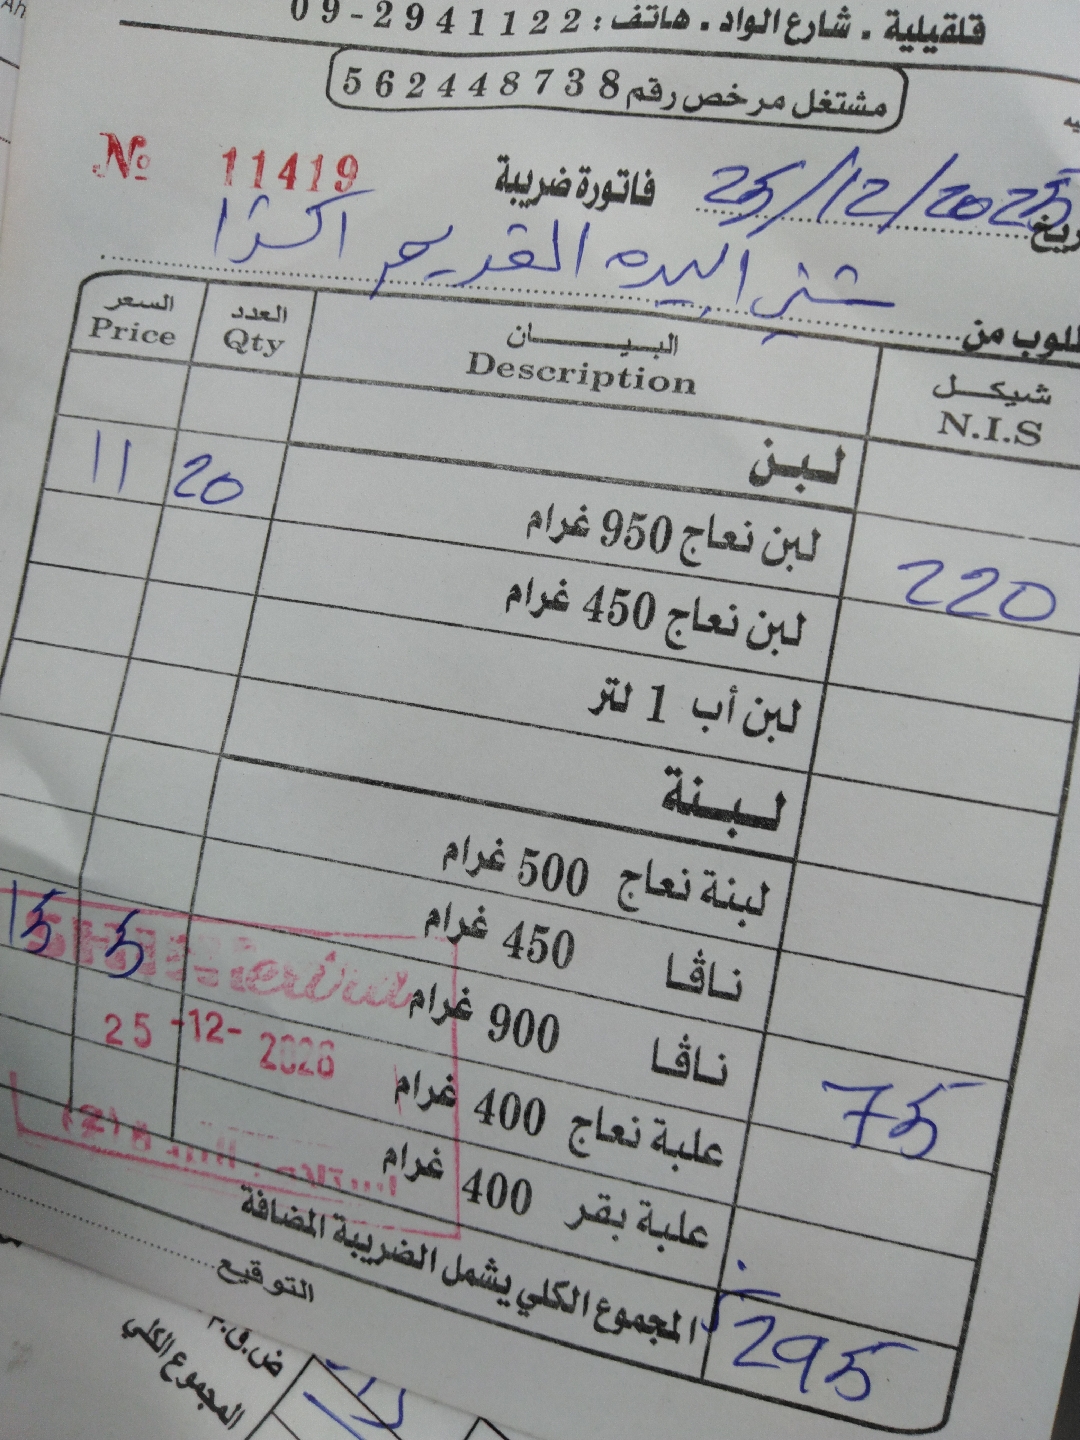 قلقيلية . شارع الواد . هاتف : 09-2941122
مشتغل مرخص رقم 562448738
№ 11419
فاتورة ضريبة
25/12/2025
السعر العدد البيـــان شيكـل
Price Qty Description N.I.S
لـبـن
لبن نعاج 950 غرام
11 20 220
لبن نعاج 450 غرام
لبن أب 1 لتر
لـبـنة
لبنة نعاج 500 غرام
ناڤا 450 غرام
ناڤا 900 غرام
15 5 75
علبة نعاج 400 غرام
علبة بقر 400 غرام
25 -12-
المجموع الكلي يشمل الضريبة المضافة 295
التوقيع
المجموع الكلي